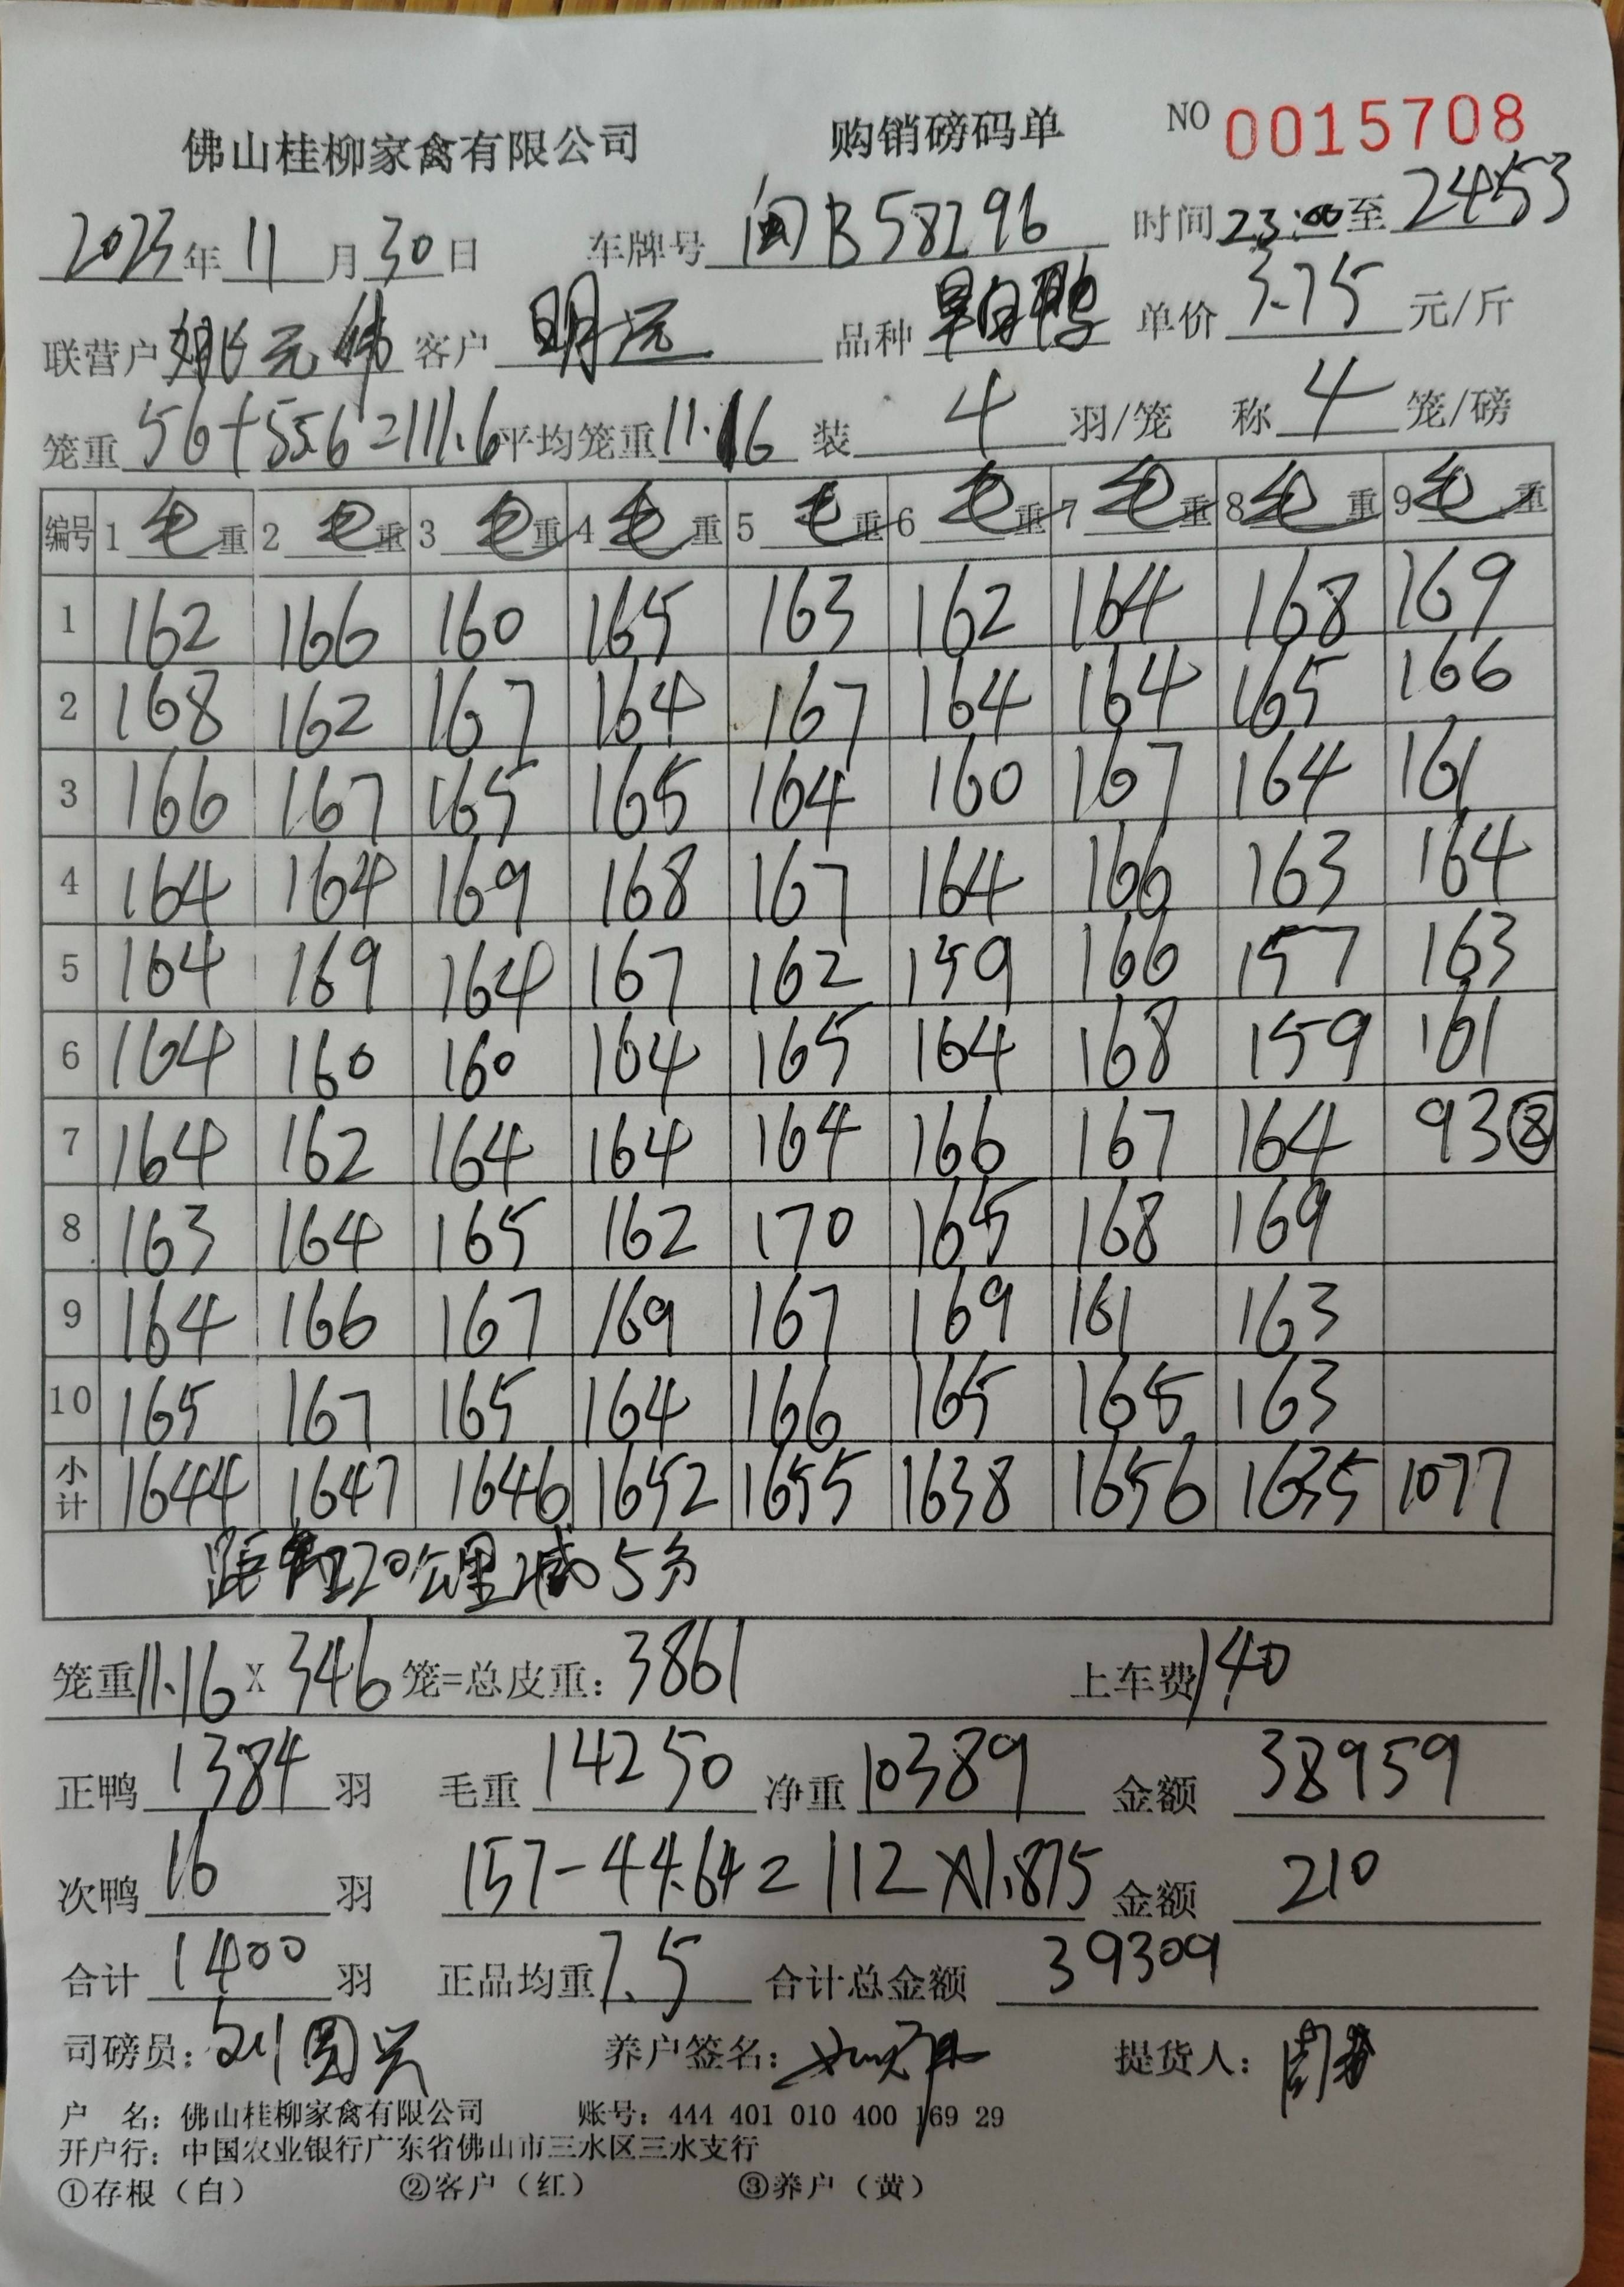 佛山桂柳家禽有限公司 购销磅码单 NO 0015708
2023年11月30日 车牌号 闽B58296 时间23:00至2453
联营户 姚元伟 客户 明远 品种 单价 3.75 元/斤
笼重 56+55.6=111.6 平均笼重 11.16 装 4 羽/笼 称 4 笼/磅
编号 1毛重 2毛重 3毛重 4毛重 5毛重 6毛重 7毛重 8毛重 9毛重
1 162 166 160 165 163 162 164 168 169
2 168 162 167 164 167 164 164 165 166
3 166 167 165 165 164 160 167 164 161
4 164 164 169 168 167 164 166 163 164
5 164 169 164 167 162 159 166 157 163
6 164 160 160 164 165 164 168 159 161
7 164 162 164 164 164 166 167 164 93⑧
8 163 164 165 162 170 165 168 169
9 164 166 167 169 167 169 161 163
10 165 167 165 164 166 165 165 163
小计 1644 1647 1646 1652 1655 1638 1656 1635 1077
距离220公里减5分
笼重11.16X346笼=总皮重：3861 上车费140
正鸭 1384 羽 毛重 14250 净重 10389 金额 38959
次鸭 16 羽 157-44.64=112×1.875 金额 210
合计 1400 羽 正品均重 7.5 合计总金额 39309
司磅员：刘圆兴 养户签名： 提货人：
户 名：佛山桂柳家禽有限公司 账号：444 401 010 400 169 29
开户行：中国农业银行广东省佛山市三水区三水支行
①存根（白） ②客户（红） ③养户（黄）